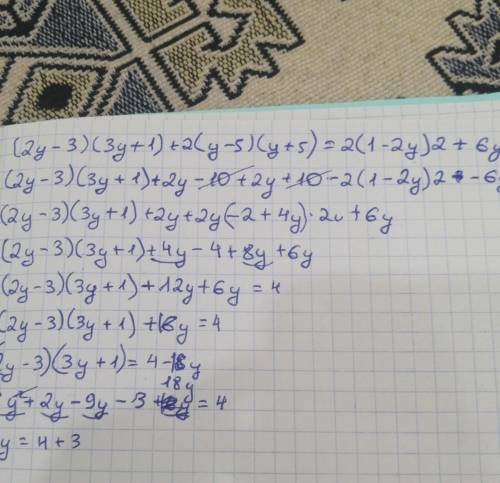 (2y-3)(3y+1)+2(y-5)(y+5)=2(1-2y)2+6y
(2y-3)(3y+1)+2y-10+2y+10-2(1-2y)2-6
(2y-3)(3y+1)+2y+2y(-2+4y)·2+6y
(2y-3)(3y+1)+4y-4+8y+6y
(2y-3)(3y+1)+12y+6y=4
(2y-3)(3y+1)+18y=4
2y-3)(3y+1)=4-18y
y²+2y-9y-3+18y=4
y=4+3